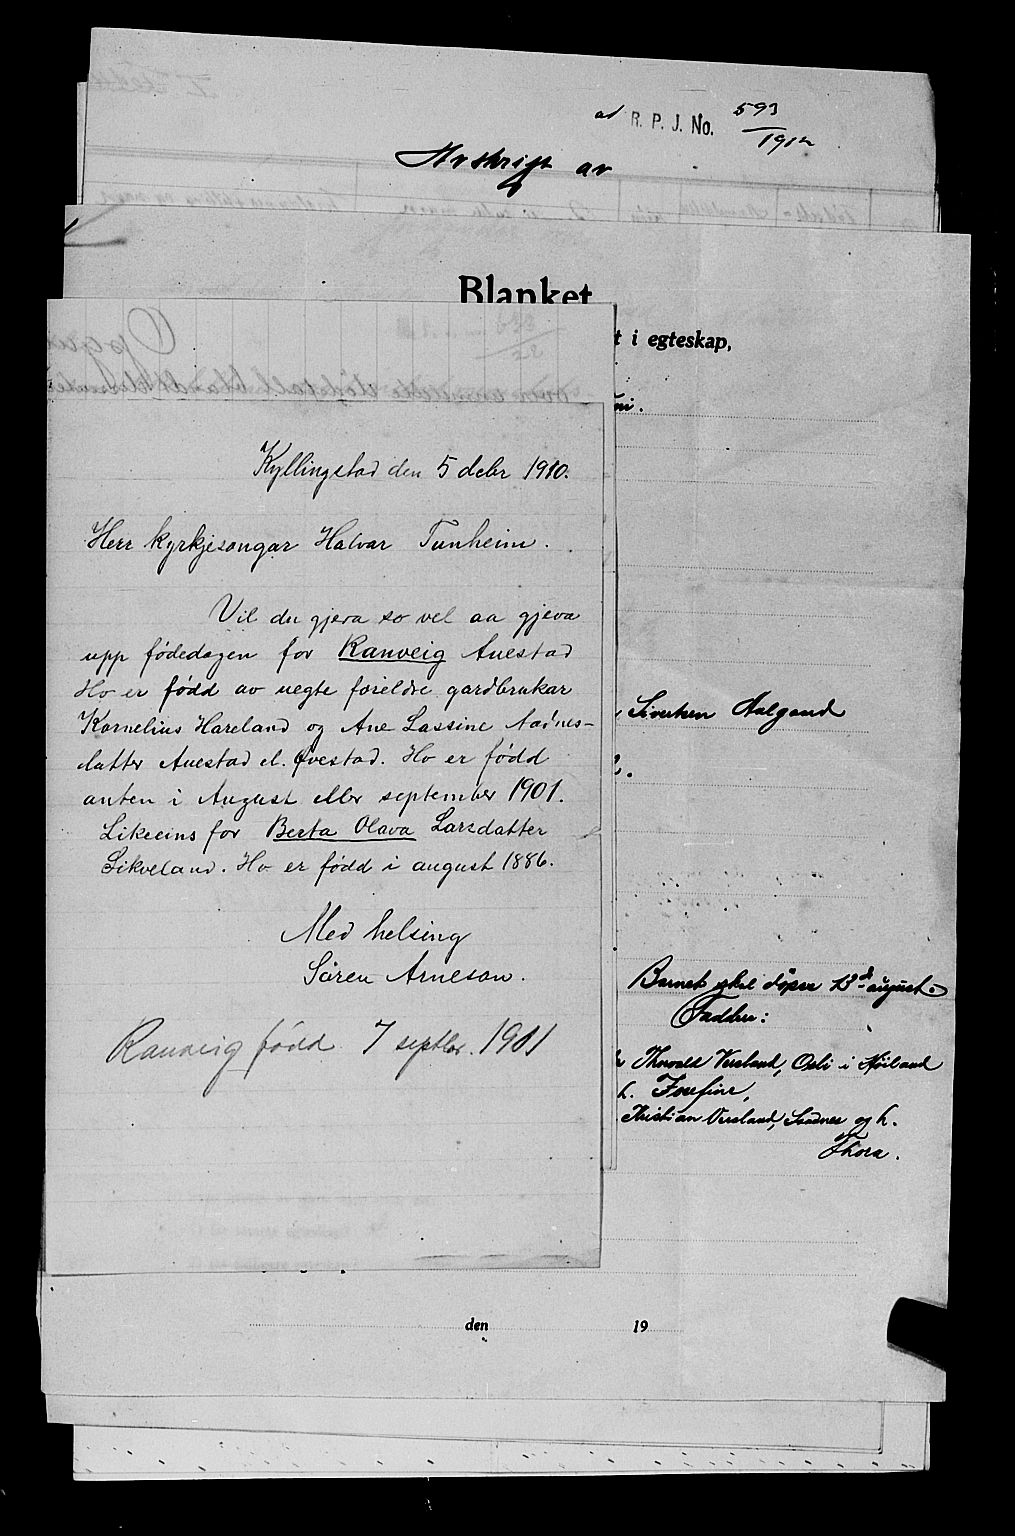 ad R. P. J. No. 593/1912
Avskrift av
Blanket
i egteskap,
Kyllingstad den 5 debr 1910.
Herr kyrkjesongar Halvar Tunheim.
Vil du gjera so vel aa gjeva
upp fødedagen for Ranveig Auestad
Ho er fødd av uegte foreldre gardbrukar
Kornelius Hareland og Ane Lassine Aadnes-
datter Auestad el. Øvestad. Ho er fødd
anten i August eller september 1901.
Likeeins for Berta Olava Larsdatter
Sikveland. Ho er fødd i august 1886.
Med helsing
Søren Arneson.
Ranveig fødd 7 septbr. 1901
Sivertsen Aalgaard
Barnet skal døpes 13de august.
Faddere:
Thorvald Versland, Osli i Høiland
h. Josefine,
Kristian Versland, Sandnes og h.
Thora.
den 19